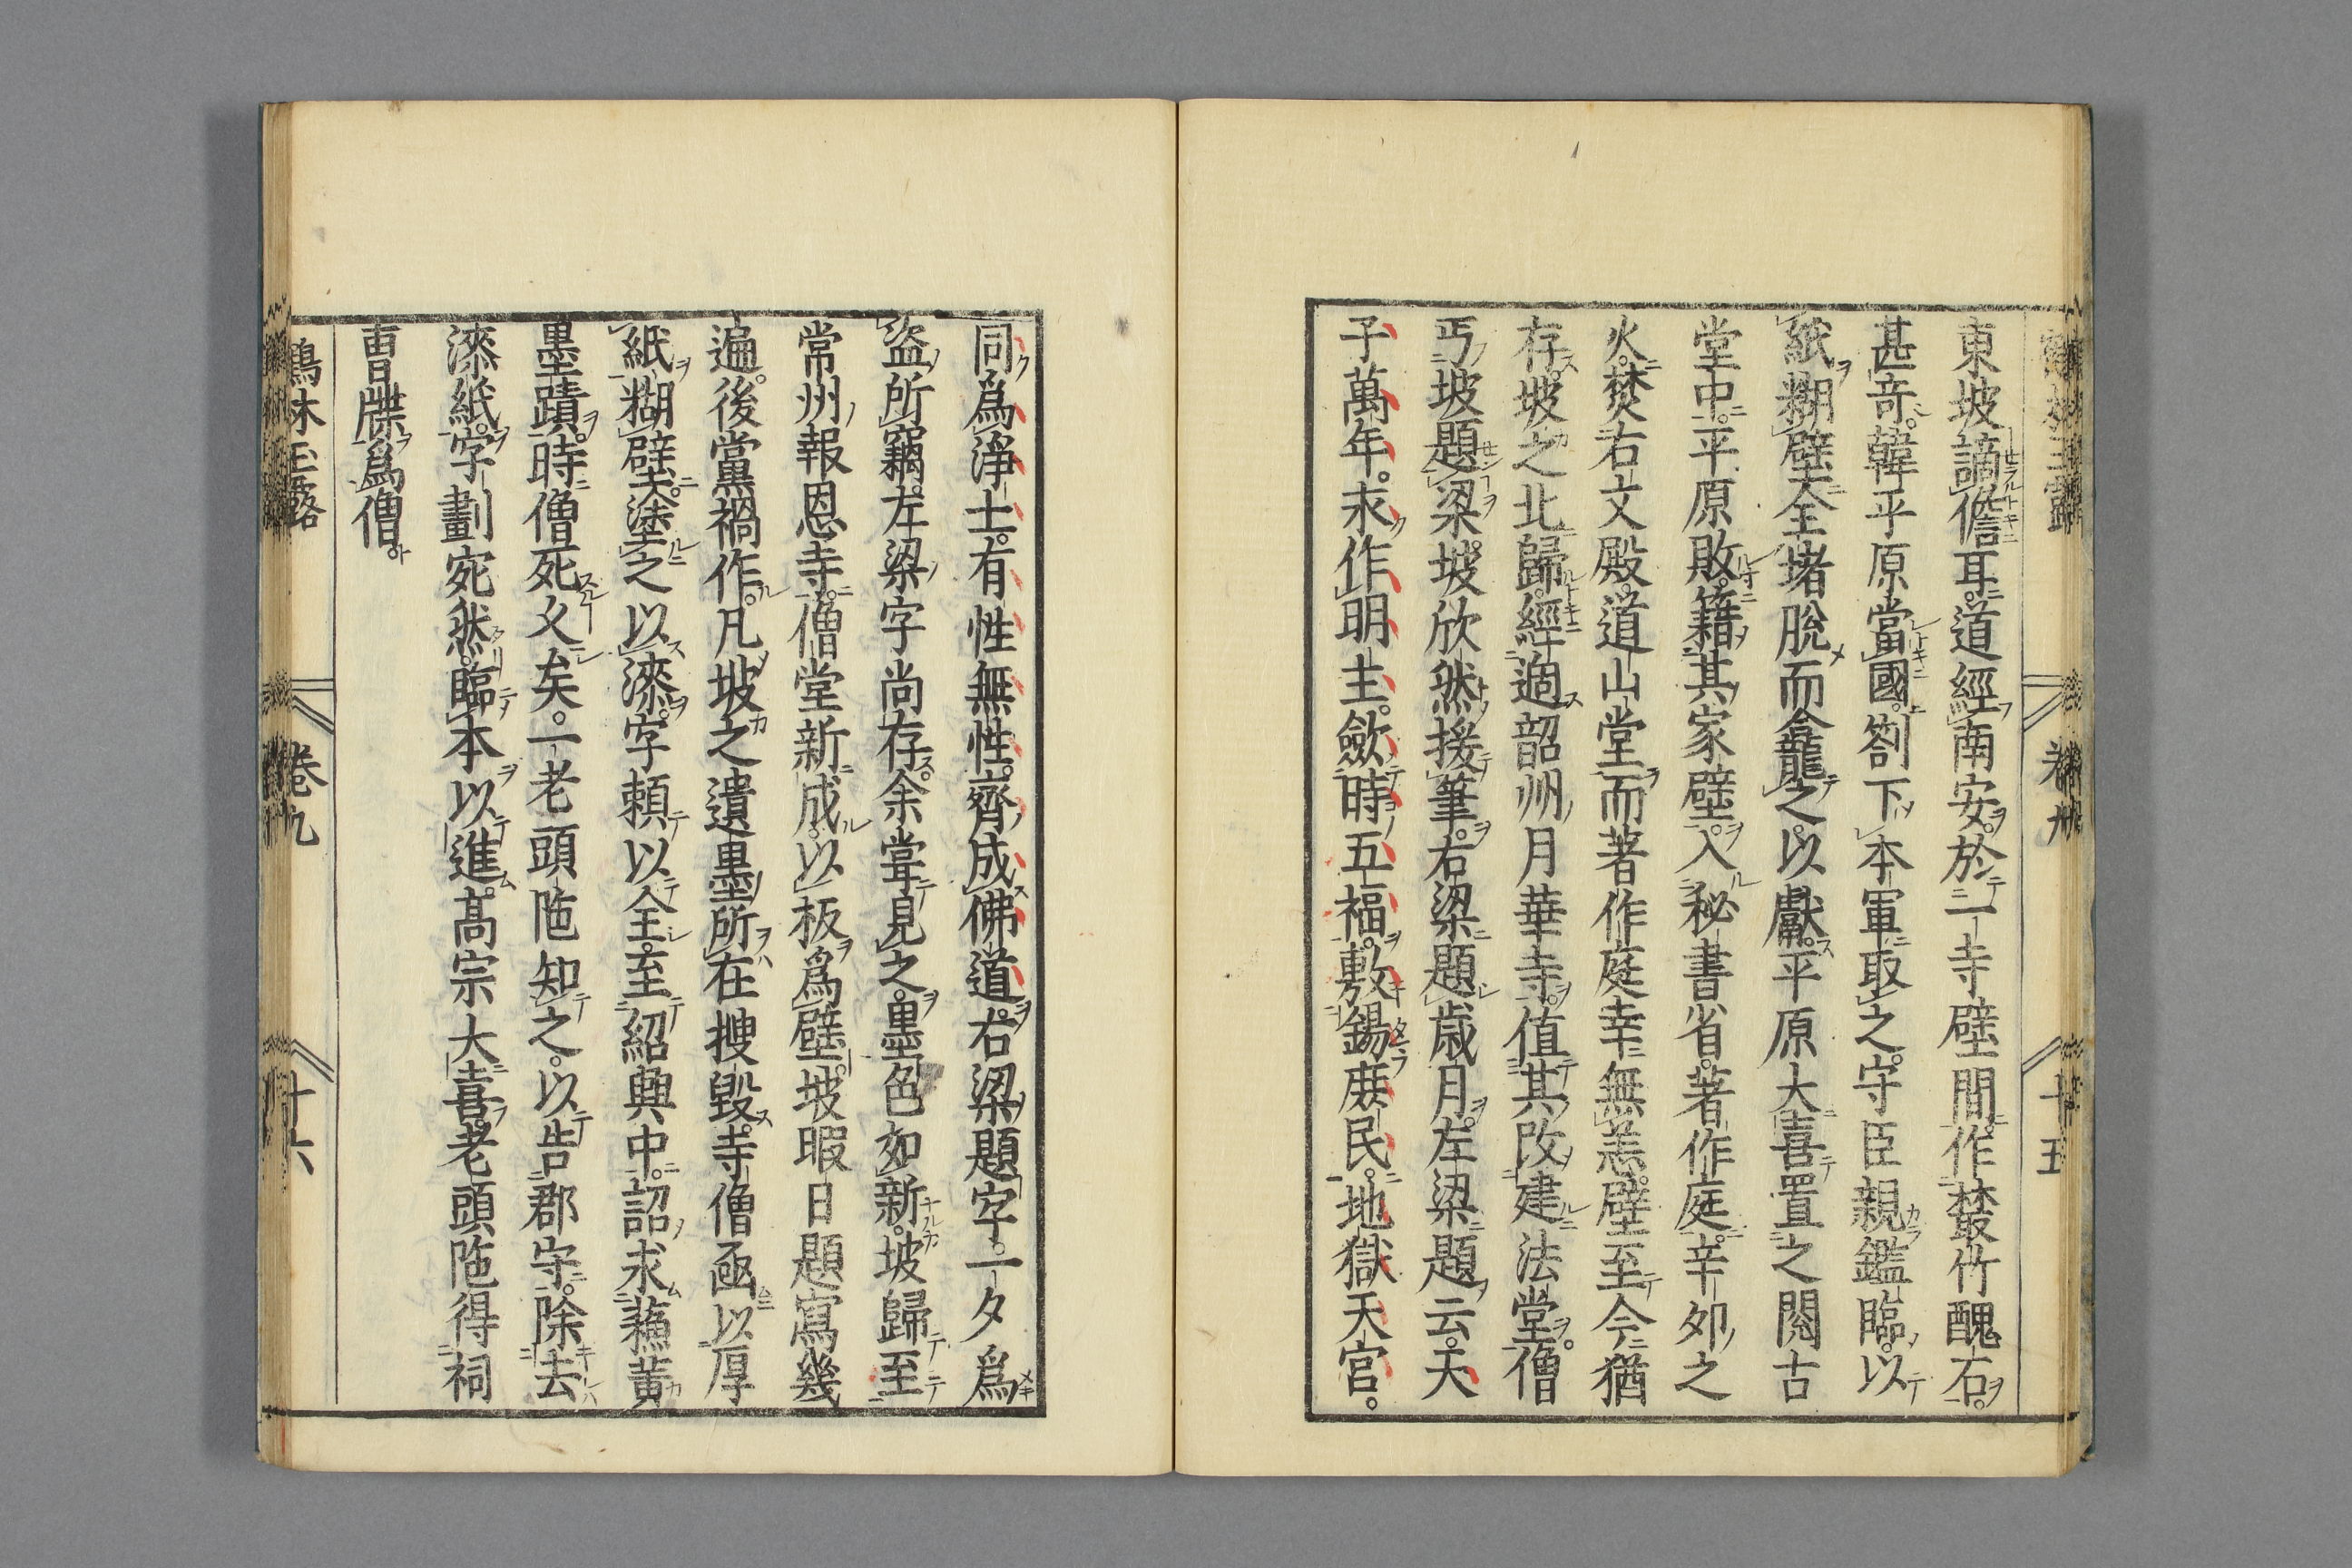 東坡謫儋耳。道經南安。於一寺壁間。作叢竹醜石。
甚奇。韓平原當國。劄下本軍取之。守臣親鑑臨。以
紙糊壁。全堵脫而龕之。以獻平原。大喜置之閱古
堂中。平原敗。籍其家壁。入秘書省。著作庭。辛卯之
火。焚右文殿。道山堂。而著作庭幸無恙。壁至今猶
存。坡之北歸。經過韶州月華寺。值其改建法堂。僧
丐坡題梁。坡欣然援筆。右梁題歲月。左梁題云。天
子萬年。永作明主。斂時五福。敷錫庶民。地獄天宮。
同爲淨土。有性無性。齊成佛道。右梁題字。一夕爲
盜所竊。左梁字尚存。余嘗見之。墨色如新。坡歸至
常州報恩寺。僧堂新成。以板爲壁。坡暇日題寫幾
遍。後黨禍作。凡坡之遺墨。所在搜毀。寺僧亟以厚
紙糊壁。塗之以漆。字頼以全。至紹興中。詔求蘇黃
墨蹟。時僧死久矣。一老頭陁知之。以告郡守。除去
漆紙。字劃宛然。臨本以進。高宗大喜。老頭陁得祠
曹牒爲僧。
鶴林玉露 卷九 十六